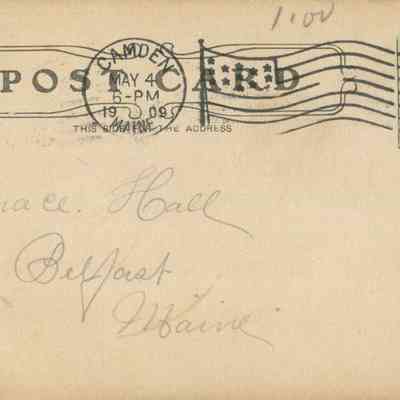 1.00
POST CARD
CAMDEN
MAY 4
6-PM
1909
MAINE
THIS SIDE FOR THE ADDRESS
Hall
Belfast
Maine